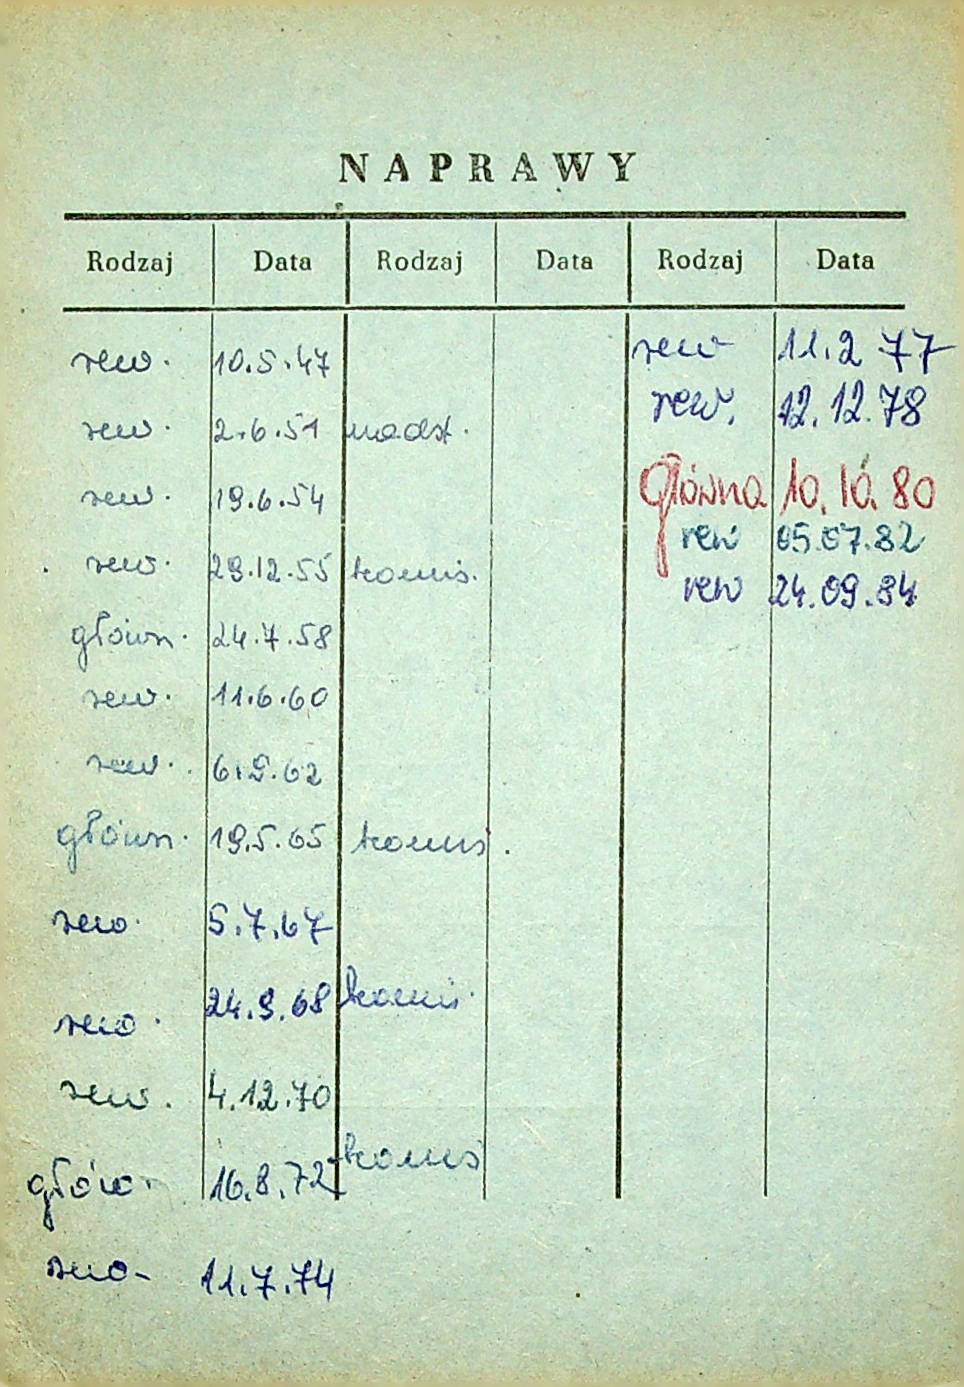 NAPRAWY
Rodzaj Data Rodzaj Data Rodzaj Data
rew. 10.5.47 rew 11.2 77
rew. 2.6.51 nadst. rew. 12.12.78
rew. 19.6.54 Główna 10.10.80
rew 05.07.82
rew. 29.12.55 komis. rew 24.09.84
główn. 24.7.58
rew. 11.6.60
rew. 6.9.62
główn. 19.5.65 komis.
rew. 5.7.67
rew. 24.9.68 komis.
rew. 4.12.70
głów. 16.8.72 komis
rew- 11.7.74